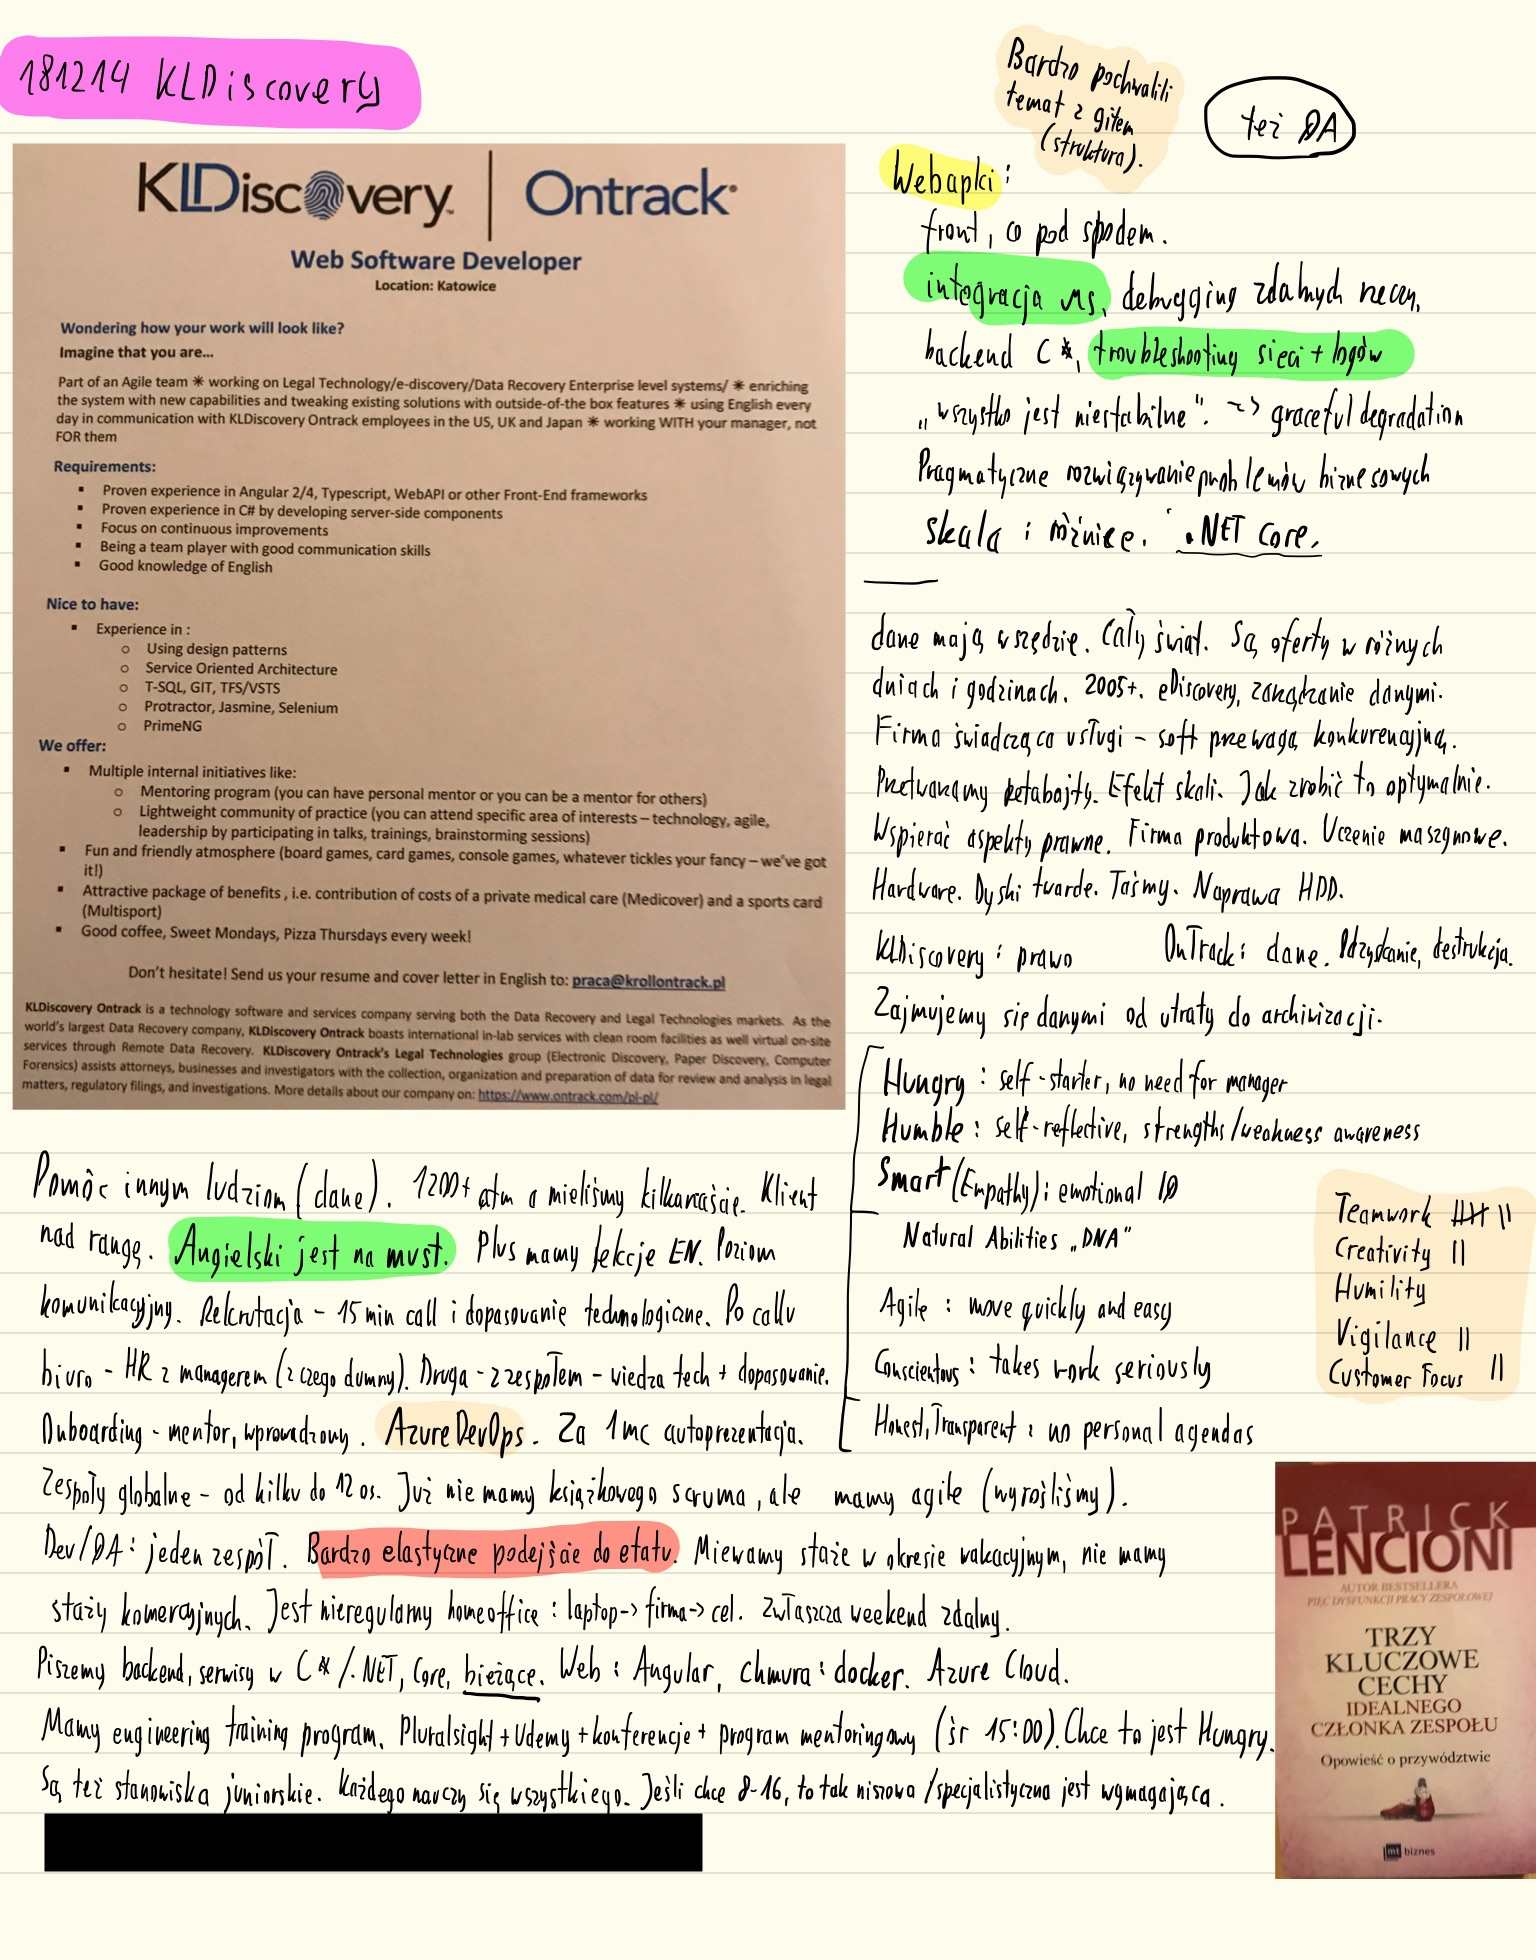 181214 KLDiscovery
KLDiscovery | Ontrack
Web Software Developer
Location: Katowice
Wondering how your work will look like?
Imagine that you are...
Part of an Agile team ✳ working on Legal Technology/e-discovery/Data Recovery Enterprise level systems/ ✳ enriching
the system with new capabilities and tweaking existing solutions with outside-of-the box features ✳ using English every
day in communication with KLDiscovery Ontrack employees in the US, UK and Japan ✳ working WITH your manager, not
FOR them
Requirements:
▪ Proven experience in Angular 2/4, Typescript, WebAPI or other Front-End frameworks
▪ Proven experience in C# by developing server-side components
▪ Focus on continuous improvements
▪ Being a team player with good communication skills
▪ Good knowledge of English
Nice to have:
▪ Experience in :
o Using design patterns
o Service Oriented Architecture
o T-SQL, GIT, TFS/VSTS
o Protractor, Jasmine, Selenium
o PrimeNG
We offer:
▪ Multiple internal initiatives like:
o Mentoring program (you can have personal mentor or you can be a mentor for others)
o Lightweight community of practice (you can attend specific area of interests – technology, agile,
leadership by participating in talks, trainings, brainstorming sessions)
▪ Fun and friendly atmosphere (board games, card games, console games, whatever tickles your fancy – we've got
it!)
▪ Attractive package of benefits , i.e. contribution of costs of a private medical care (Medicover) and a sports card
(Multisport)
▪ Good coffee, Sweet Mondays, Pizza Thursdays every week!
Don't hesitate! Send us your resume and cover letter in English to: praca@krollontrack.pl
KLDiscovery Ontrack is a technology software and services company serving both the Data Recovery and Legal Technologies markets. As the
world's largest Data Recovery company, KLDiscovery Ontrack boasts international in-lab services with clean room facilities as well virtual on-site
services through Remote Data Recovery. KLDiscovery Ontrack's Legal Technologies group (Electronic Discovery, Paper Discovery, Computer
Forensics) assists attorneys, businesses and investigators with the collection, organization and preparation of data for review and analysis in legal
matters, regulatory filings, and investigations. More details about our company on: https://www.ontrack.com/pl-pl/
Bardzo pochwalili
temat z gitem
(struktura).
też QA
Webapki:
front, co pod spodem.
integracja MS, debugging zdalnych
backend C#, troubleshooting sieci + logów
„wszystko jest niestabilne". ~> graceful degradation
Pragmatyczne rozwiązywanie problemów biznesowych
skala i różnice. .NET Core.
dane mają wszędzie. Cały świat. Są oferty w różnych
dniach i godzinach. 2005+. eDiscovery, zarządzanie danymi.
Firma świadcząca usługi – soft przewagą konkurencyjną.
Przetwarzamy petabajty. Efekt skali. Jak zrobić to optymalnie.
Wspierać aspekty prawne. Firma produktowa. Uczenie maszynowe.
Hardware. Dyski twarde. Taśmy. Naprawa HDD.
KLDiscovery: prawo OnTrack: dane. Odzyskanie, destrukcja.
Zajmujemy się danymi od utraty do archiwizacji.
Hungry: self-starter, no need for manager
Humble: self-reflective, strengths/weakness awareness
Smart (Empathy): emotional IQ
Natural Abilities „DNA"
Agile: move quickly and easy
Conscientous: takes work seriously
Honest, Transparent: no personal agendas
Teamwork
Creativity ||
Humility
Vigilance ||
Customer Focus ||
Pomóc innym ludziom (dane). 1200+ atm a mieliśmy kilkanaście. Klient
nad rangę. Angielski jest na must. Plus mamy lekcje EN. Poziom
komunikacyjny. Rekrutacja – 15 min call i dopasowanie technologiczne. Po callu
biuro – HR z managerem (z czego dumny). Druga – z zespołem – wiedza tech + dopasowanie.
Onboarding – mentor, wprowadzony. AzureDevOps. Za 1mc autoprezentacja.
Zespoły globalne – od kilku do 12 os. Już nie mamy książkowego scruma, ale mamy agile (wyrośliśmy).
Dev/QA: jeden zespół. Bardzo elastyczne podejście do etatu. Miewamy staże w okresie wakacyjnym, nie mamy
staży komercyjnych. Jest nieregularny homeoffice: laptop -> firma -> cel. Zwłaszcza weekend zdalny.
Piszemy backend, serwisy w C#/.NET, Core, bieżące. Web: Angular, chmura: docker. Azure Cloud.
Mamy engineering training program. Pluralsight + Udemy + konferencje + program mentoringowy (śr 15:00). Chce to jest Hungry.
Są też stanowiska juniorskie. Każdego nauczy się wszystkiego. Jeśli chce 8-16, to tak niszowa/specjalistyczna jest wymagająca.
PATRICK
LENCIONI
AUTOR BESTSELLERA
PIĘĆ DYSFUNKCJI PRACY ZESPOŁOWEJ
TRZY
KLUCZOWE
CECHY
IDEALNEGO
CZŁONKA ZESPOŁU
Opowieść o przywództwie
mt biznes